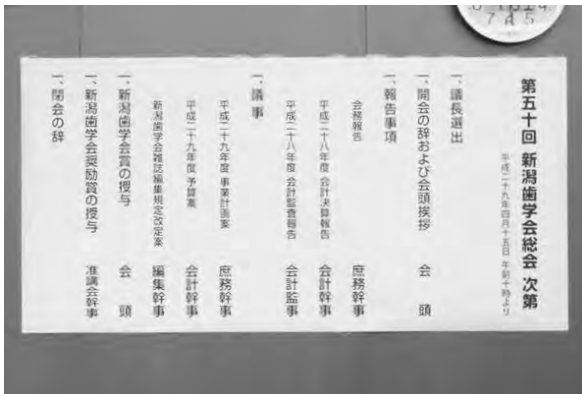 第五十回 新潟歯学会総会 次第
平成二十九年四月十五日 午前十時より
一、議長選出
一、開会の辞および会頭挨拶 会 頭
一、報告事項
会務報告 庶務幹事
平成二十八年度 会計決算報告 会計幹事
平成二十八年度 会計監査報告 会計監事
一、議事
平成二十九年度 事業計画案 庶務幹事
平成二十九年度 予算案 会計幹事
新潟歯学会雑誌編集規定改定案 編集幹事
一、新潟歯学会賞の授与 会 頭
一、新潟歯学会奨励賞の授与 准講会幹事
一、閉会の辞